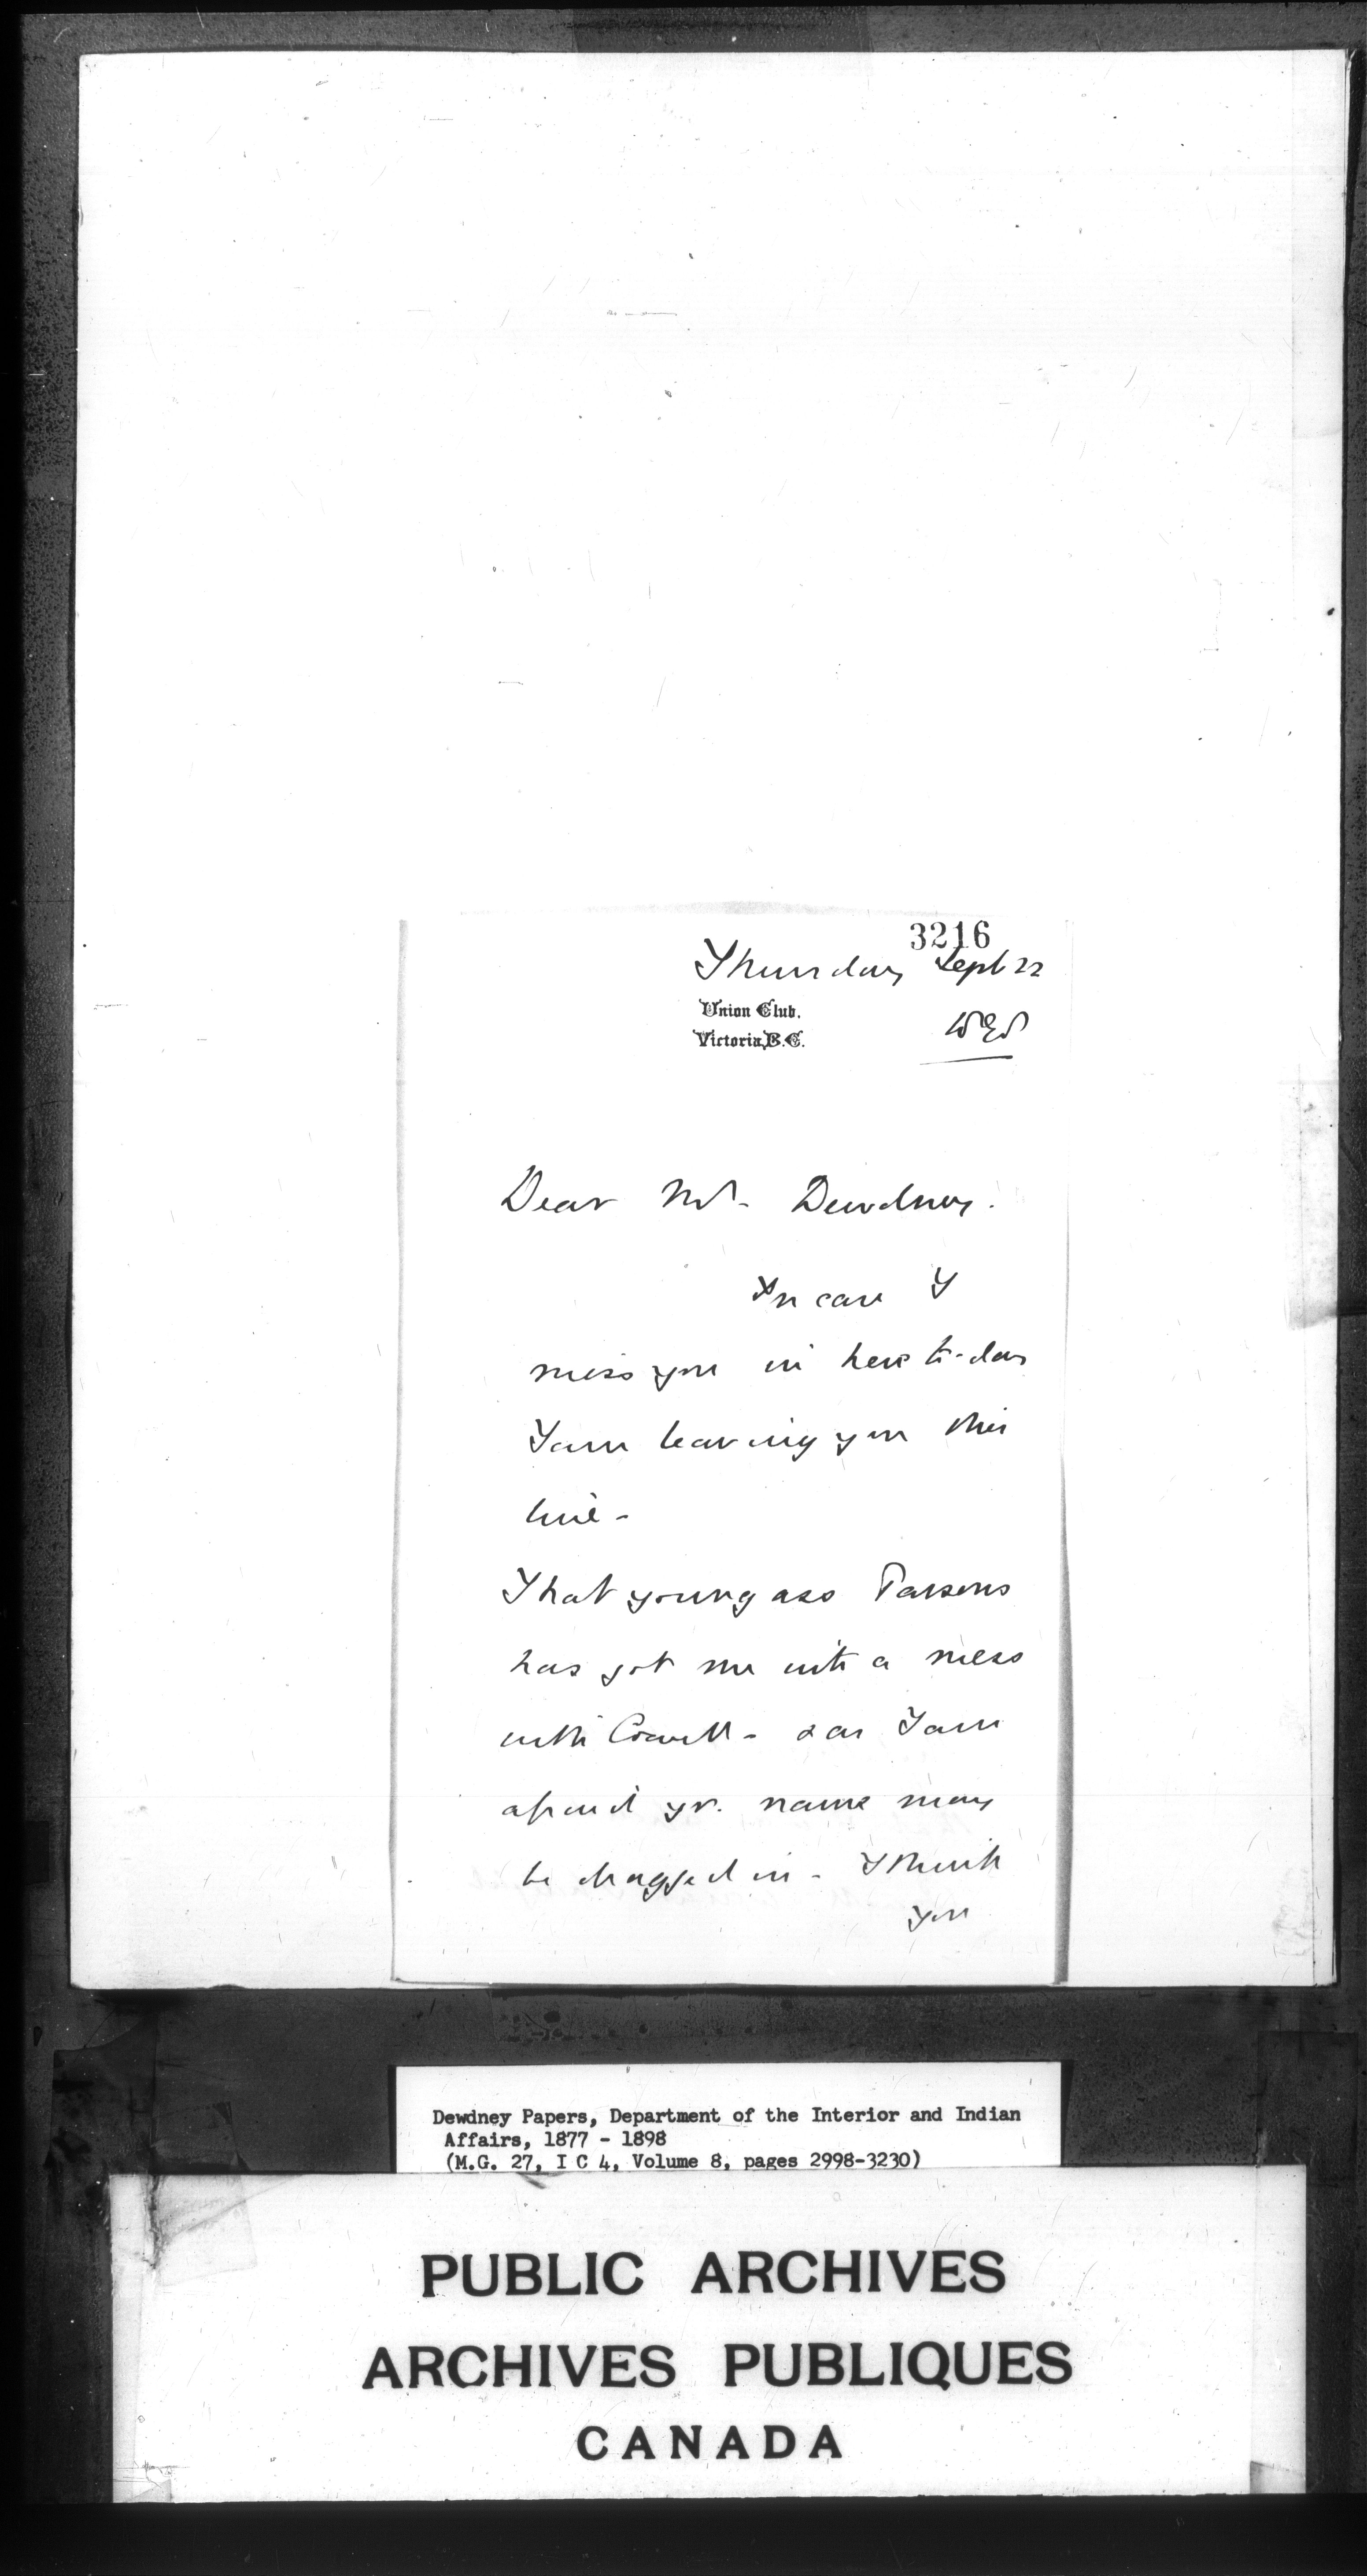 3216
Thursday Sept 22
Union Club.
Victoria, B.C.
Dear Mr. Dewdney.
In case I
miss you in here to-day
I am leaving you this
line -
That young ass Parsons
has got me into a mess
with - & as I am
afraid yr. name may
be dragged in - I think
you
Dewdney Papers, Department of the Interior and Indian
Affairs, 1877 - 1898
(M.G. 27, I C 4, Volume 8, pages 2998-3230)
PUBLIC ARCHIVES
ARCHIVES PUBLIQUES
CANADA